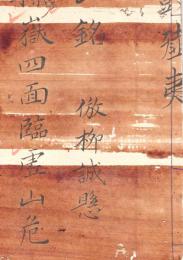 銘 倣柳誠懸
嶽四面臨虛山危